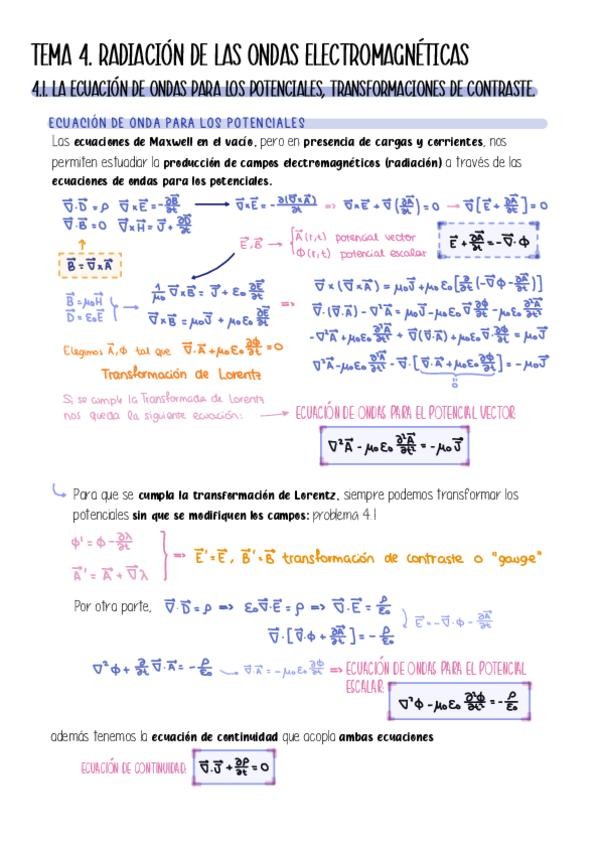 TEMA 4. RADIACIÓN DE LAS ONDAS ELECTROMAGNÉTICAS
4.1. LA ECUACIÓN DE ONDAS PARA LOS POTENCIALES, TRANSFORMACIONES DE CONTRASTE.
ECUACIÓN DE ONDA PARA LOS POTENCIALES
Las ecuaciones de Maxwell en el vacío, pero en presencia de cargas y corrientes, nos
permiten estuadiar la producción de campos electromagnéticos (radiación) a través de las
ecuaciones de ondas para los potenciales.
∇⃗·D⃗ = ρ ∇⃗×E⃗ = -∂B⃗/∂t → ∇⃗×E⃗ = -∂(∇⃗×A⃗)/∂t => ∇⃗×E⃗ + ∇⃗×(∂A⃗/∂t) = 0 → ∇⃗[E⃗ + ∂A⃗/∂t] = 0
∇⃗·B⃗ = 0 ∇⃗×H⃗ = J⃗ + ∂D⃗/∂t
E⃗, B⃗ → { A⃗(r,t) potencial vector
Φ(r,t) potencial escalar
E⃗ + ∂A⃗/∂t = -∇⃗·Φ
B⃗ = ∇⃗×A⃗
B⃗ = μ₀H⃗
D⃗ = ε₀E⃗
1/μ₀ ∇⃗×B⃗ = J⃗ + ε₀ ∂E⃗/∂t
∇⃗×B⃗ = μ₀J⃗ + μ₀ε₀ ∂E⃗/∂t =>
∇⃗×(∇⃗×A⃗) = μ₀J⃗ + μ₀ε₀[∂/∂t(-∇⃗Φ - ∂A⃗/∂t)]
∇⃗·(∇⃗·A⃗) - ∇²A⃗ = μ₀J⃗ - μ₀ε₀∇⃗ ∂Φ/∂t - μ₀ε₀ ∂²A⃗/∂t²
-∇²A⃗ + μ₀ε₀ ∂²A⃗/∂t² + ∇⃗(∇⃗·A⃗) + μ₀ε₀∇⃗ ∂Φ/∂t = μ₀J⃗
∇²A⃗ - μ₀ε₀ ∂²A⃗/∂t² - ∇⃗·[∇⃗·A⃗ + μ₀ε₀ ∂Φ/∂t] = -μ₀J⃗
0
Elegimos A⃗, Φ tal que ∇⃗·A⃗ + μ₀ε₀ ∂Φ/∂t = 0
Transformación de Lorentz
Si se cumple la Transformada de Lorentz
nos queda la siguiente ecuación: → ECUACIÓN DE ONDAS PARA EL POTENCIAL VECTOR
∇²A⃗ - μ₀ε₀ ∂²A⃗/∂t² = -μ₀J⃗
Para que se cumpla la transformación de Lorentz, siempre podemos transformar los
potenciales sin que se modifiquen los campos: problema 4.1
Φ' = Φ - ∂λ/∂t
A⃗' = A⃗ + ∇⃗λ
=> E⃗' = E⃗, B⃗' = B⃗ transformación de contraste o "gauge"
Por otra parte, ∇⃗·D⃗ = ρ => ε₀∇⃗·E⃗ = ρ => ∇⃗·E⃗ = ρ/ε₀
E⃗ = -∇⃗·Φ - ∂A⃗/∂t
∇⃗·[∇⃗·Φ + ∂A⃗/∂t] = -ρ/ε₀
∇²Φ + ∂/∂t ∇⃗·A⃗ = -ρ/ε₀ → ∇⃗·A⃗ = -μ₀ε₀ ∂Φ/∂t => ECUACIÓN DE ONDAS PARA EL POTENCIAL
ESCALAR:
∇²Φ - μ₀ε₀ ∂²Φ/∂t² = -ρ/ε₀
además tenemos la ecuación de continuidad que acopla ambas ecuaciones
ECUACIÓN DE CONTINUIDAD: ∇⃗·J⃗ + ∂ρ/∂t = 0